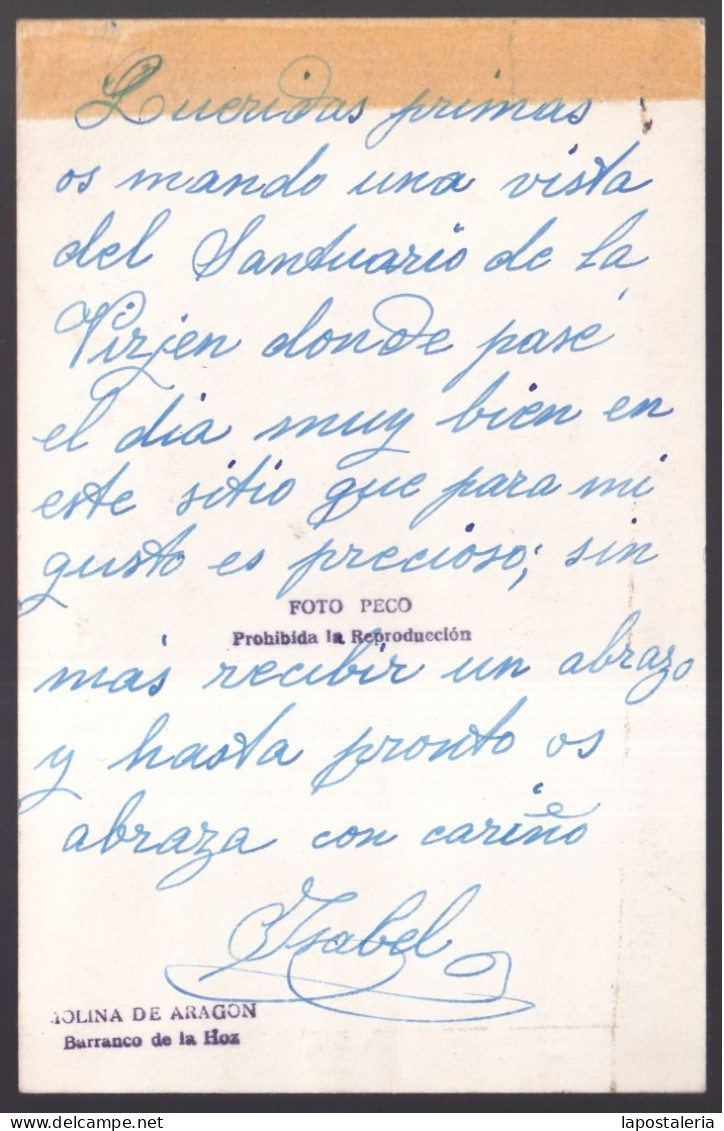 Queridas primas
os mando una vista
del Santuario de la
Virjen donde pasé
el dia muy bien en
este sitio que para mi
gusto es precioso; sin
FOTO PECO
Prohibida la Reproducción
más recibir un abrazo
y hasta pronto os
abraza con cariño
Isabel
MOLINA DE ARAGON
Barranco de la Hoz
lapostaleria